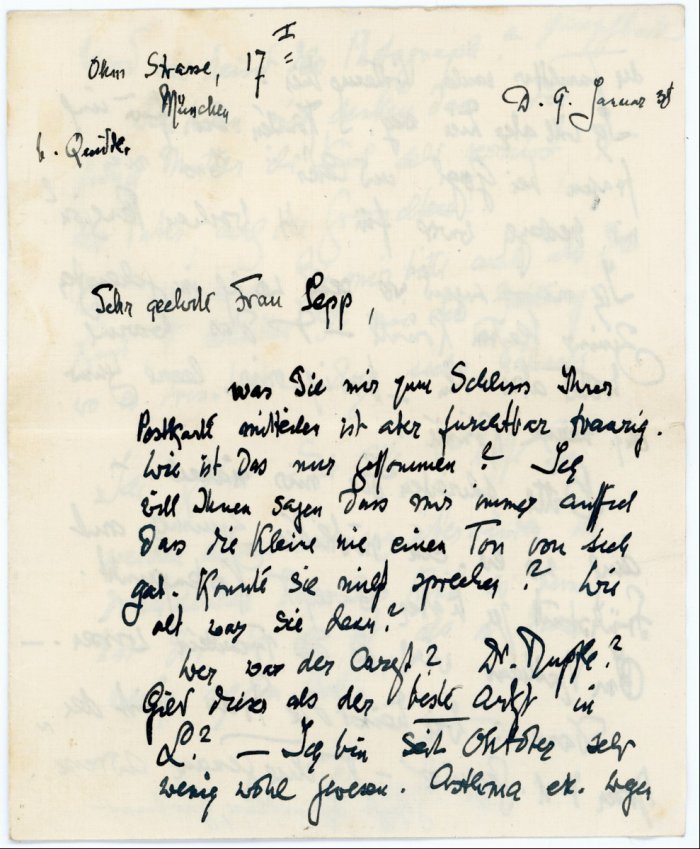 I
Ohm Strasse, 17
München
D. 9. Januar 38
b. Quidde
Sehr geehrte Frau Sepp,
was Sie mir zum Schluss Ihrer
Postkarte mitteilen ist aber furchtbar traurig.
Wie ist das nur gekommen? Ich
will Ihnen sagen dass mir immer auffiel
dass die Kleine nie einen Ton von sich
gab. Konnte sie nicht sprechen? Wie
alt war sie denn?
Wer war der Arzt? Dr.
Gilt dieser als der beste Arzt in
L.? — Ich bin seit Oktober sehr
wenig wohl gewesen. Asthma etc. wegen